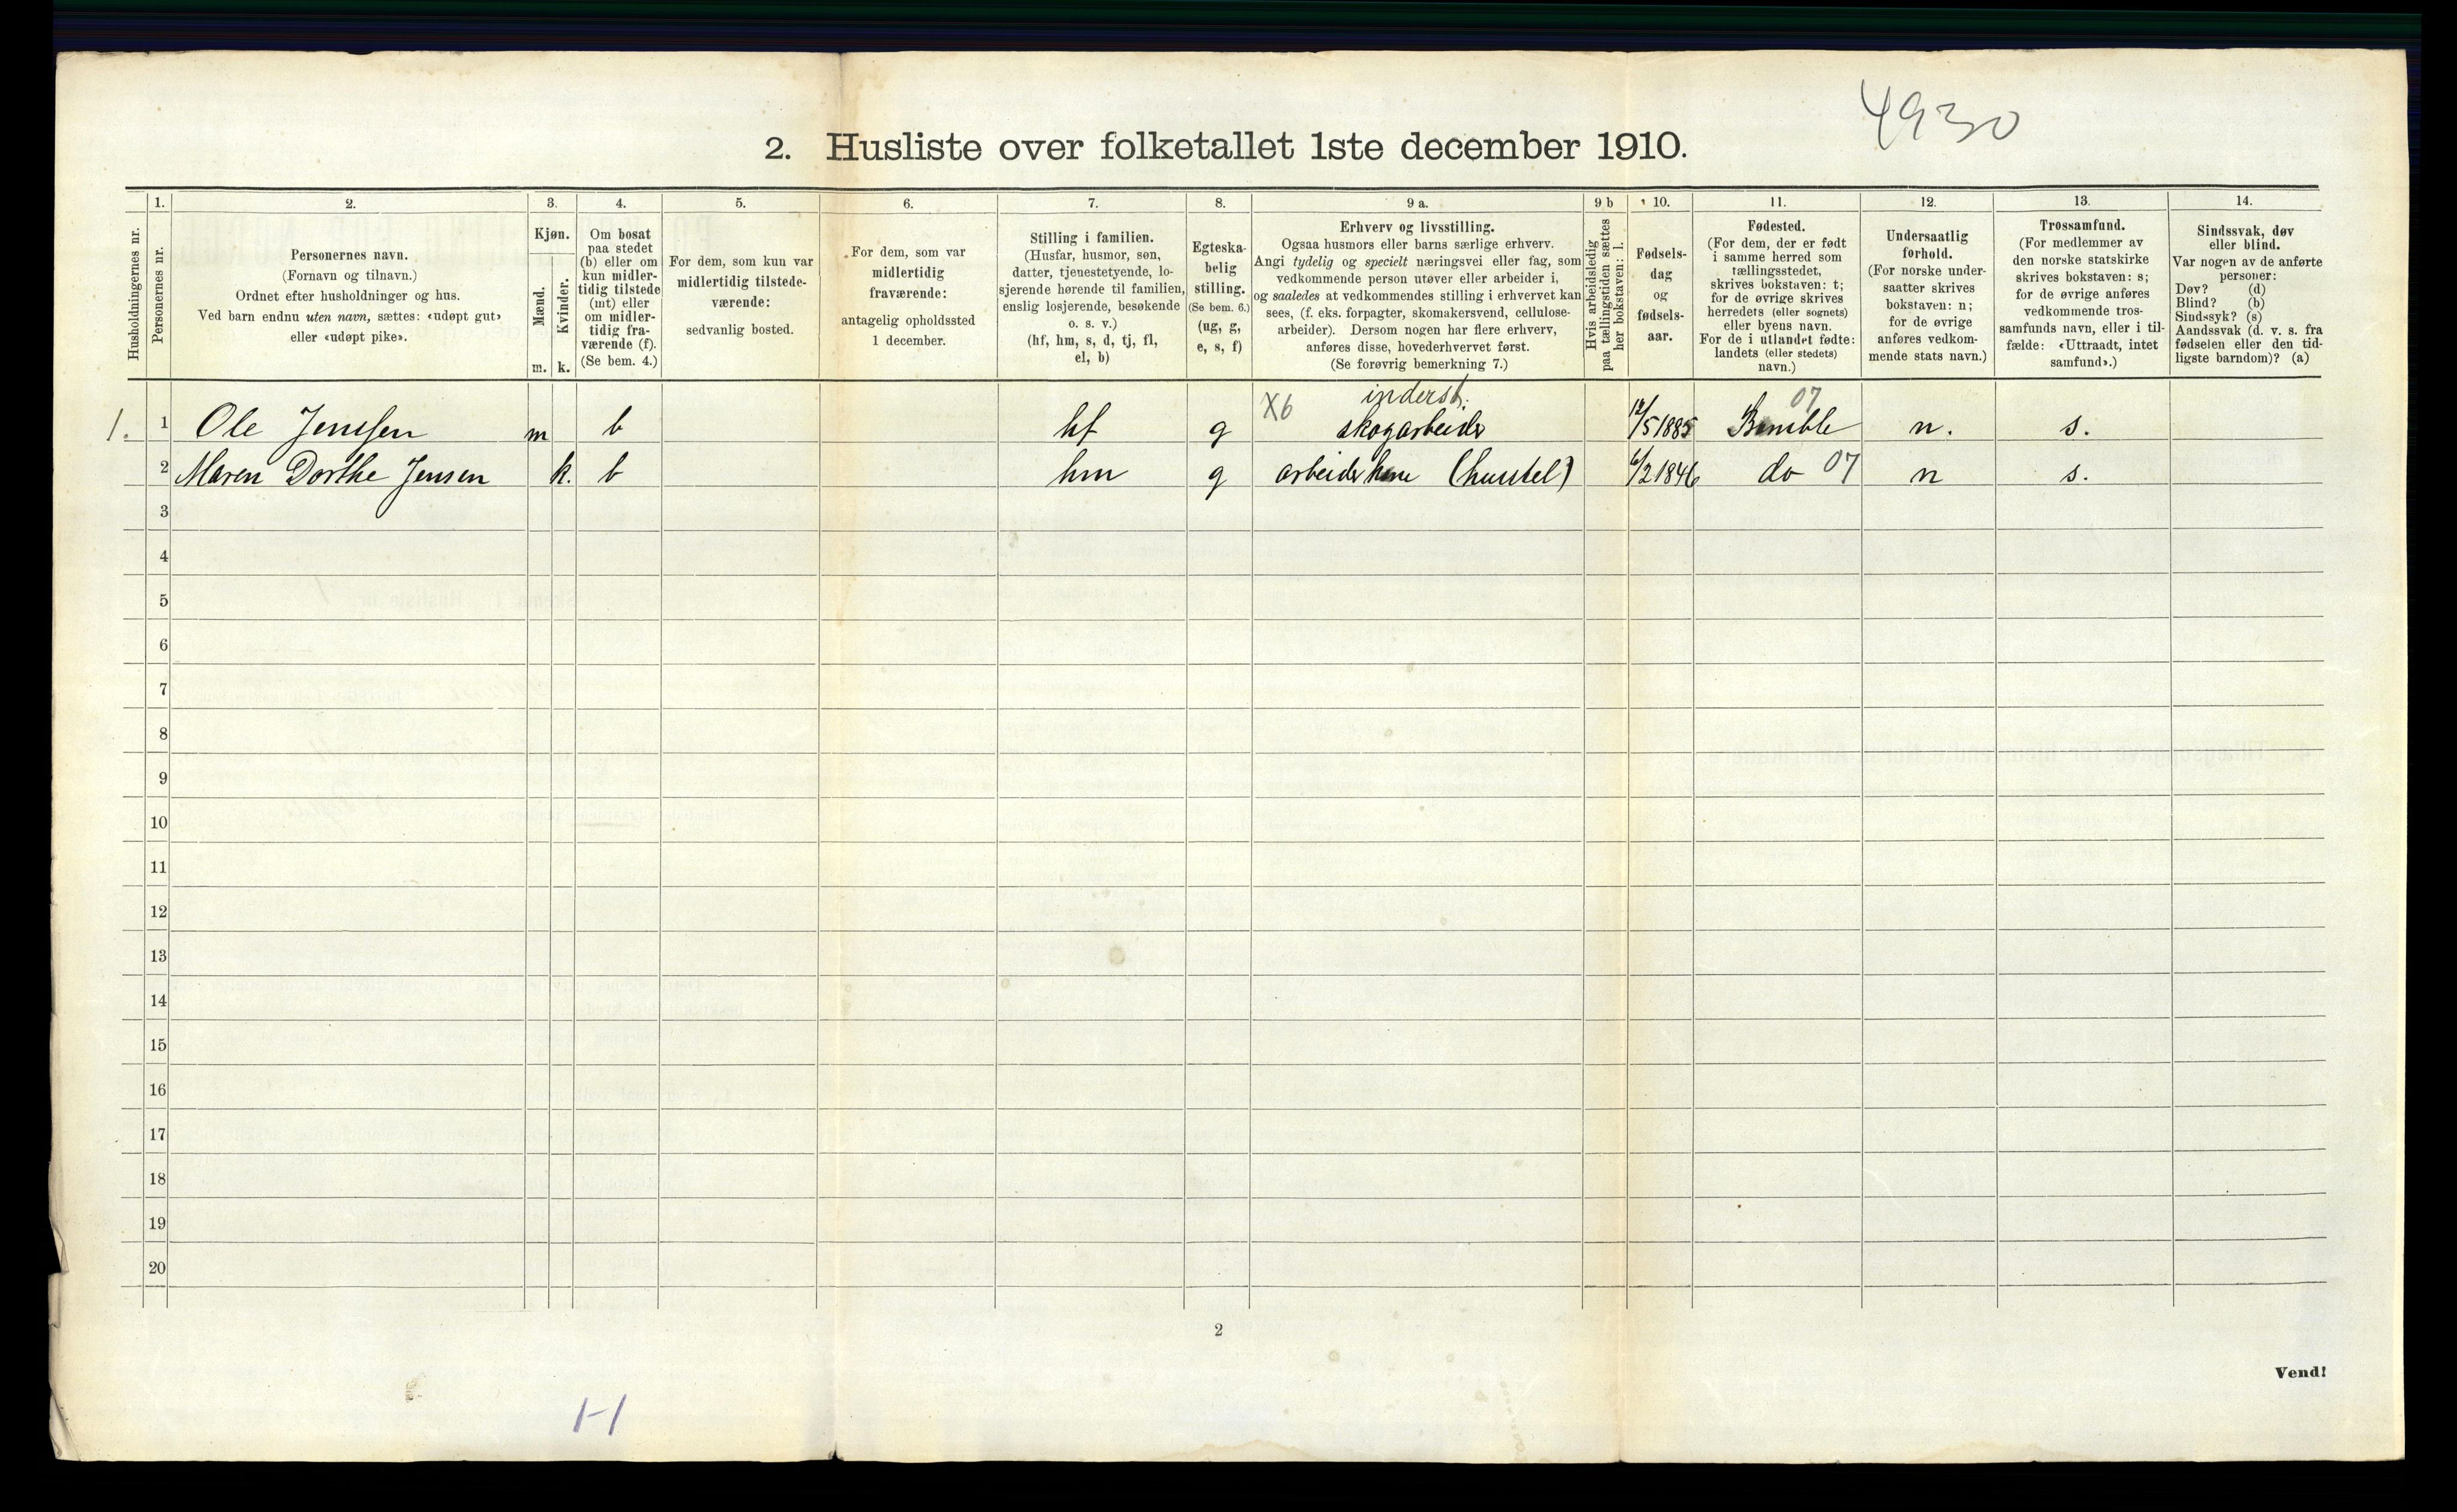 4930
2. Husliste over folketallet 1ste december 1910.
Husholdningernes nr.
1.
Personernes nr.
2.
Personernes navn.
(Fornavn og tilnavn.)
Ordnet efter husholdninger og hus.
Ved barn endnu uten navn, sættes: «udøpt gut»
eller «udøpt pike».
3.
Kjøn.
Mænd.
Kvinder.
m. k.
4.
Om bosat
paa stedet
(b) eller om
kun midler-
tidig tilstede
(mt) eller
om midler-
tidig fra-
værende (f).
(Se bem. 4.)
5.
For dem, som kun var
midlertidig tilstede-
værende:
sedvanlig bosted.
6.
For dem, som var
midlertidig
fraværende:
antagelig opholdssted
1 december.
7.
Stilling i familien.
(Husfar, husmor, søn,
datter, tjenestetyende, lo-
sjerende hørende til familien,
enslig losjerende, besøkende
o. s. v.)
(hf, hm, s, d, tj, fl,
el, b)
8.
Egteska-
belig
stilling.
(Se bem. 6.)
(ug, g,
e, s, f)
9 a.
Erhverv og livsstilling.
Ogsaa husmors eller barns særlige erhverv.
Angi tydelig og specielt næringsvei eller fag, som
vedkommende person utøver eller arbeider i,
og saaledes at vedkommendes stilling i erhvervet kan
sees, (f. eks. forpagter, skomakersvend, cellulose-
arbeider). Dersom nogen har flere erhverv,
anføres disse, hovederhvervet først.
(Se forøvrig bemerkning 7.)
9 b
Hvis arbeidsledig
paa tællingstiden sættes
her bokstaven: l.
10.
Fødsels-
dag
og
fødsels-
aar.
11.
Fødested.
(For dem, der er født
i samme herred som
tællingsstedet,
skrives bokstaven: t;
for de øvrige skrives
herredets (eller sognets)
eller byens navn.
For de i utlandet fødte:
landets (eller stedets)
navn.)
12.
Undersaatlig
forhold.
(For norske under-
saatter skrives
bokstaven: n;
for de øvrige
anføres vedkom-
mende stats navn.)
13.
Trossamfund.
(For medlemmer av
den norske statskirke
skrives bokstaven: s;
for de øvrige anføres
vedkommende tros-
samfunds navn, eller i til-
fælde: «Uttraadt, intet
samfund».)
14.
Sindssvak, døv
eller blind.
Var nogen av de anførte
personer:
Døv? (d)
Blind? (b)
Sindssyk? (s)
Aandssvak (d. v. s. fra
fødselen eller den tid-
ligste barndom)? (a)
X6 inderst. 07
1. 1 Ole Jenssen m b hf g skogarbeider /5 1885 Bamble n. s.
2 Maren Dorthe Jensen k. b hm g arbeider (husstel) 6/2 1846 do 07 n s.
3
4
5
6
7
8
9
10
11
12
13
14
15
16
17
18
19
20
2
Vend!
1-1